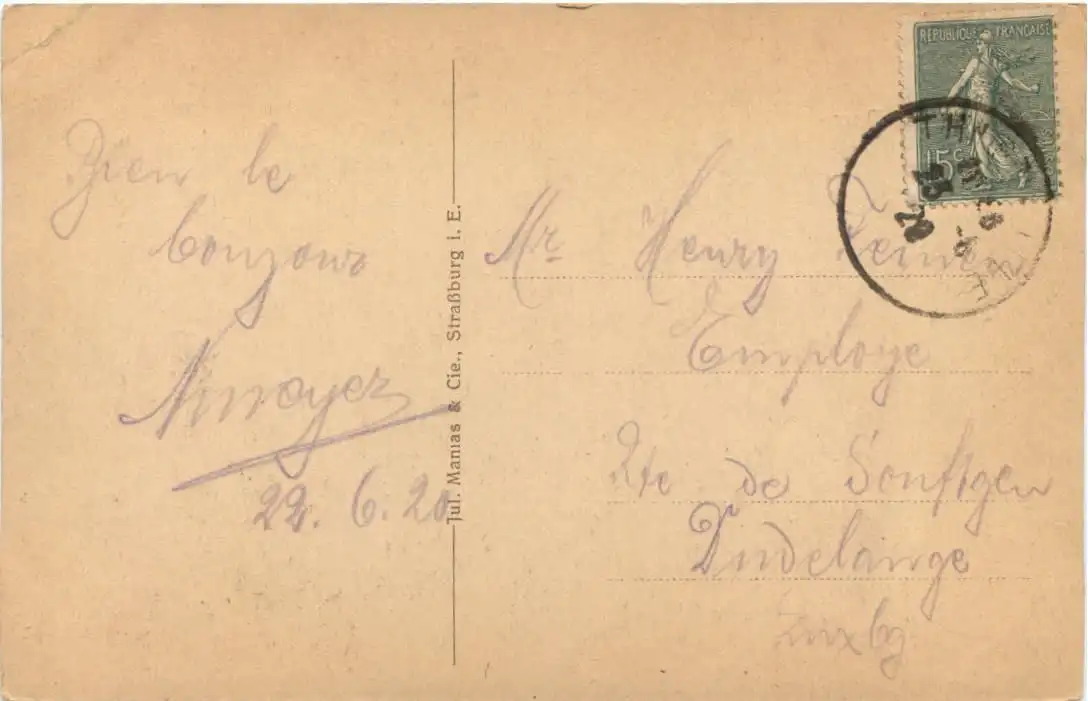 Bien le
bonjour
22. 6. 20
Jul. Manias & Cie., Straßburg i. E.
RÉPUBLIQUE FRANÇAISE
15c
Mr Henry
Employe
Rte de Souftgen
Dudelange
Luxbg